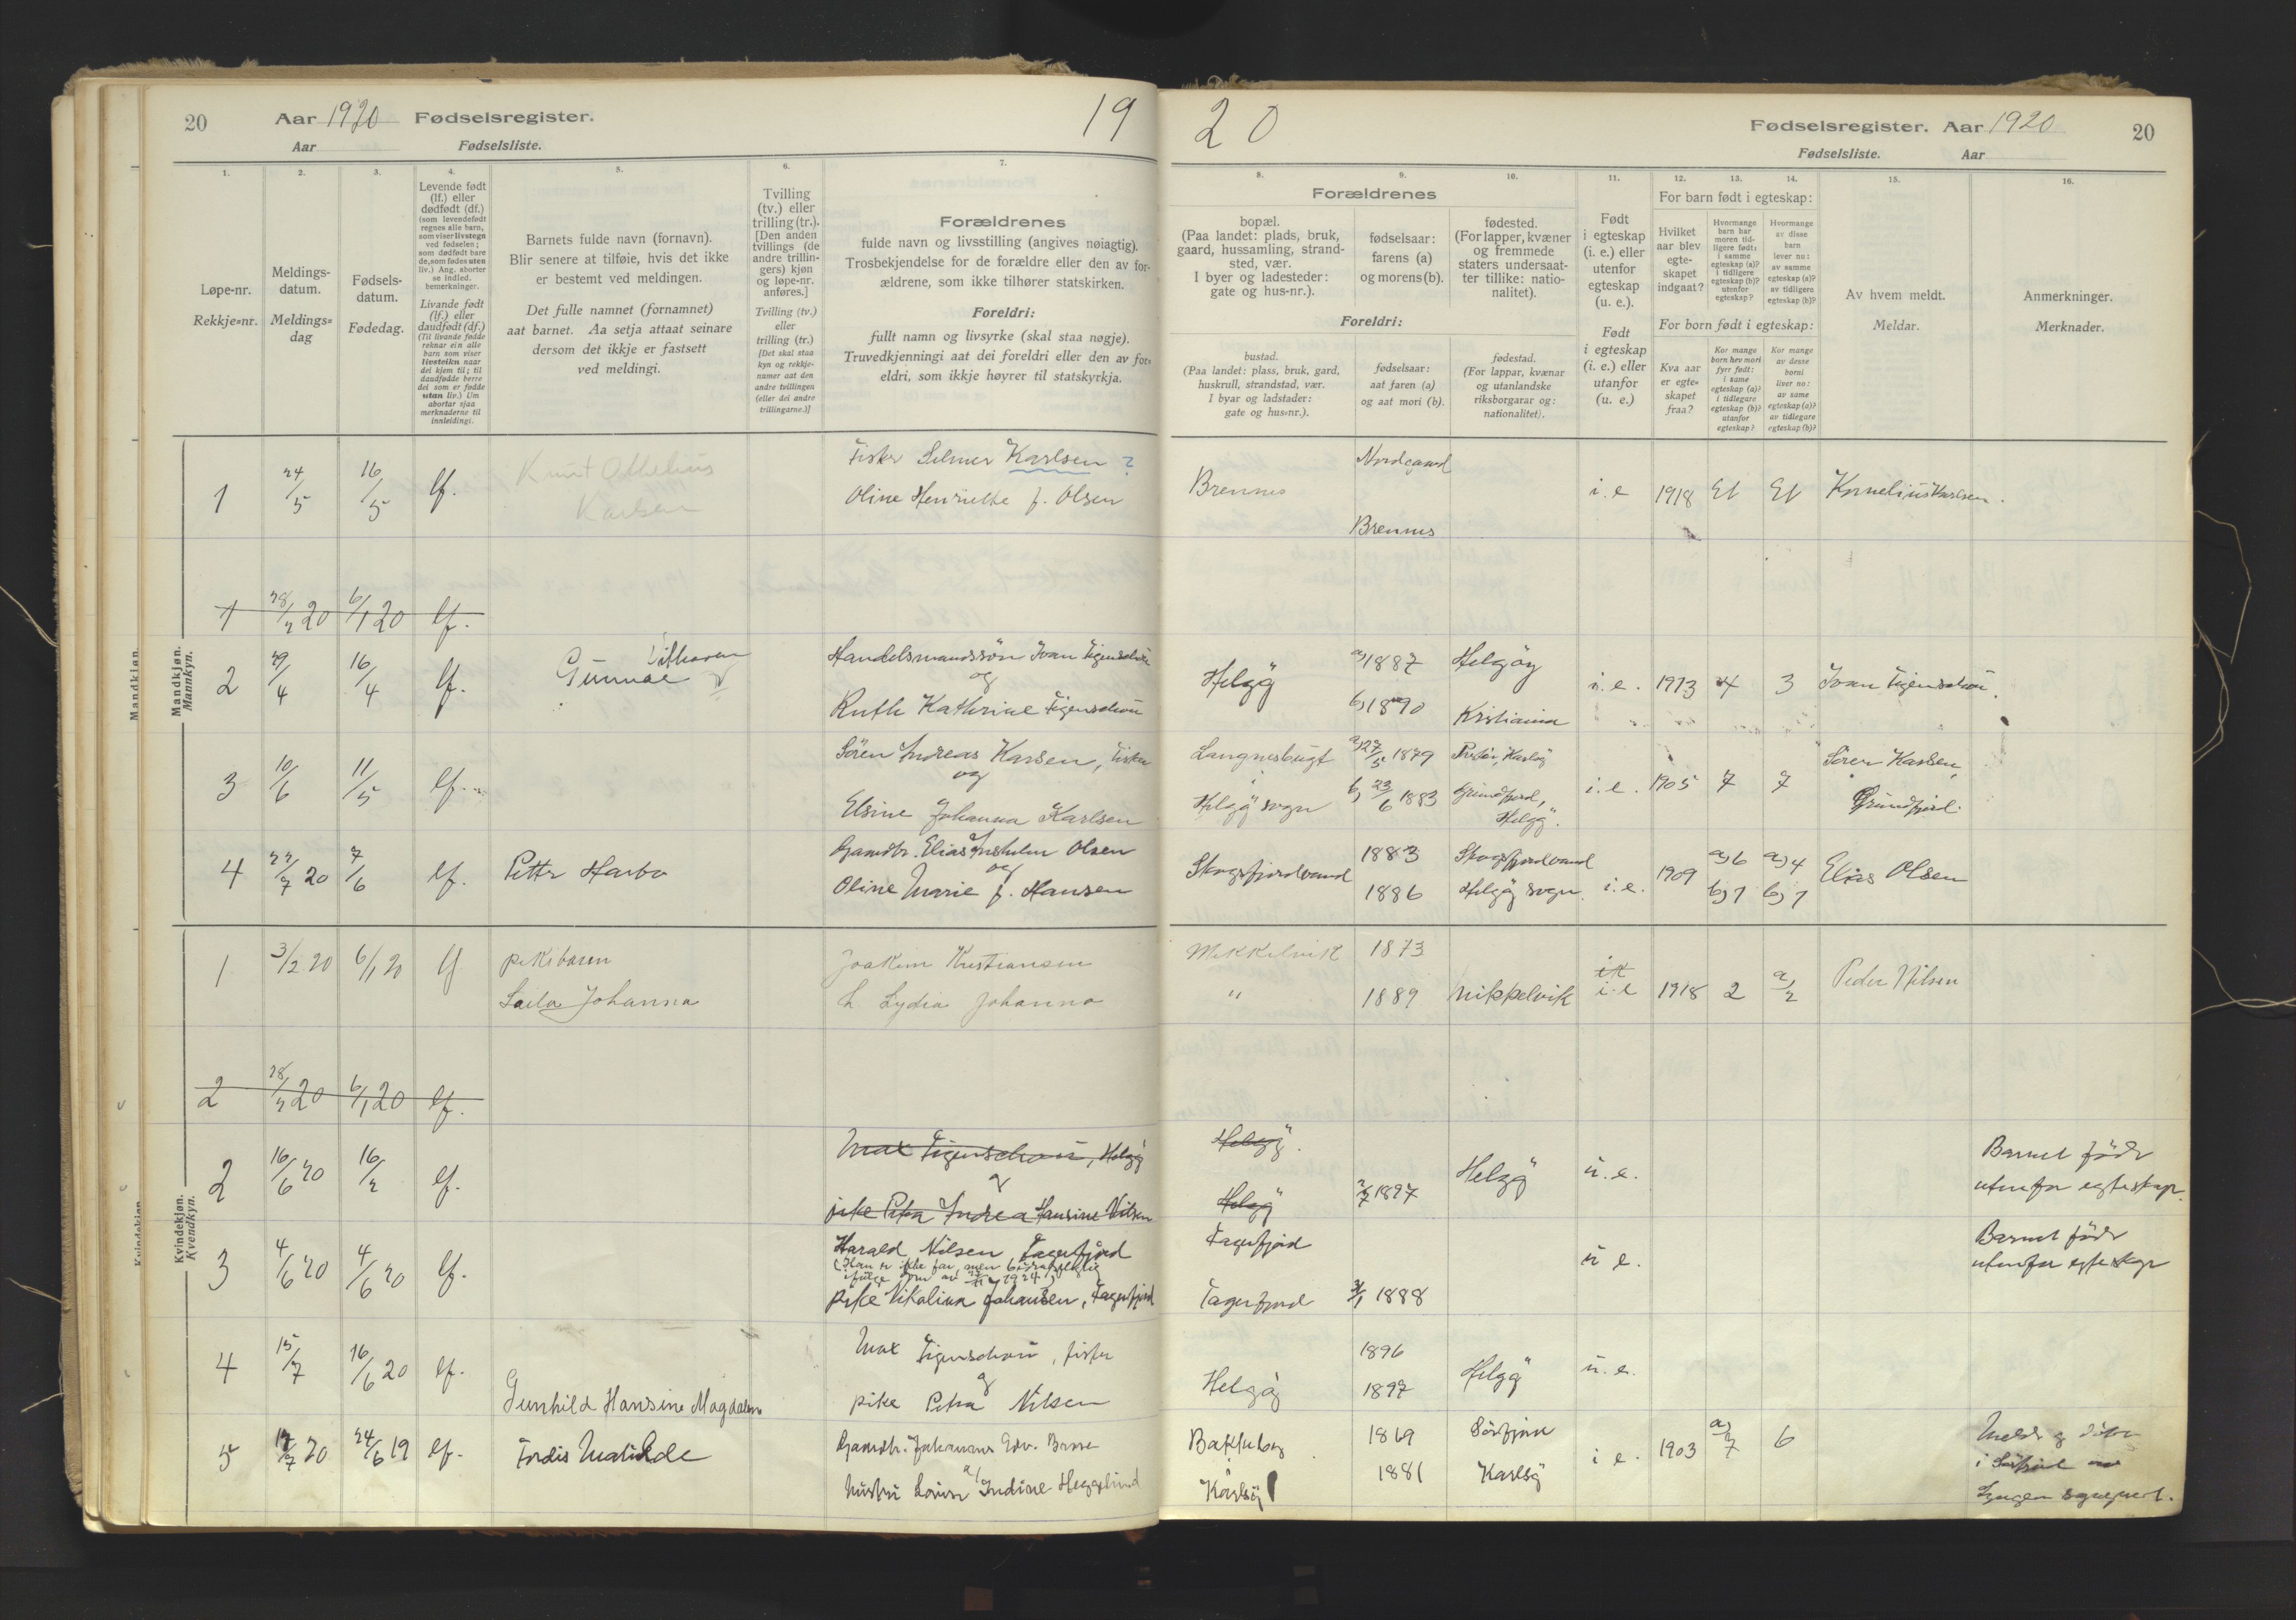 20 Aar 1920 Fødselsregister. 19
Aar Fødselsliste.
20 Fødselsregister. Aar 1920 20
Fødselsliste. Aar
1. 2. 3. 4. 5. 6. 7.
Løpe-nr.
Rekkje=nr.
Meldings-
datum.
Meldings=
dag
Fødsels-
datum.
Fødedag.
Levende født
(lf.) eller
dødfødt (df.)
(som levendefødt
regnes alle barn,
som viser livstegn
ved fødselen;
som dødfødt bare
de, som fødes uten
liv.) Ang. aborter
se indled.
bemerkninger.
Livande født
(lf.) eller
daudfødt (df.)
(Til livande fødde
reknar ein alle
barn som viser
livsteikn naar
dei kjem til; til
daudfødde berre
dei som er fødde
utan liv.) Um
abortar sjaa
merknaderne til
innleidingi.
Barnets fulde navn (fornavn).
Blir senere at tilføie, hvis det ikke
er bestemt ved meldingen.
Det fulle namnet (fornamnet)
aat barnet. Aa setja attaat seinare
dersom det ikkje er fastsett
ved meldingi.
Tvilling
(tv.) eller
trilling (tr.).
[Den anden
tvillings (de
andre trillin-
gers) kjøn
og løpe-nr.
anføres.]
Tvilling (tv.)
eller
trilling (tr.)
[Det skal staa
kyn og rekkje-
numer aat den
andre tvillingen
(eller dei andre
trillingarne.)]
Forældrenes
fulde navn og livsstilling (angives nøiagtig).
Trosbekjendelse for de forældre eller den av for-
ældrene, som ikke tilhører statskirken.
Foreldri:
fullt namn og livsyrke (skal staa nøgje).
Truvedkjenningi aat dei foreldri eller den av for=
eldri, som ikkje høyrer til statskyrkja.
8. 9. 10. 11. 12. 13. 14. 15. 16.
Forældrenes
bopæl.
(Paa landet: plads, bruk,
gaard, hussamling, strand-
sted, vær.
I byer og ladesteder:
gate og hus-nr.).
fødselsaar:
farens (a)
og morens (b).
fødested.
(For lapper, kvæner
og fremmede
staters undersaat-
ter tillike: natio-
nalitet).
Foreldri:
bustad.
(Paa landet: plass, bruk, gard,
huskrull, strandstad, vær.
I byar og ladstader:
gate og hus=nr.).
fødselsaar:
aat faren (a)
og aat mori (b).
fødestad.
(For lappar, kvænar
og utanlandske
riksborgarar og:
nationalitet).
Født
i egteskap
(i. e.) eller
utenfor
egteskap
(u. e.).
Født
i egteskap
(i. e.) eller
utanfor
(u. e.)
For barn født i egteskap:
Hvilket
aar blev
egte-
skapet
indgaat?
Hvormange
barn har
moren tid-
ligere født:
i samme
egteskap (a)?
i tidligere
egteskap (b)?
utenfor
egteskap?
Hvormange
av disse
barn
lever nu:
av samme
egteskap (a)?
av tidligere
egteskap (b)?
For born født i egteskap:
Kva aar
er egte=
skapet
fraa?
Kor mange
born hev mori
fyrr født:
i same
egteskap (a)?
i tidlegare
egteskap (b)?
utanfor
egteskap?
Kor mange
av desse
borni
liver no:
av same
egteskap (a)?
av tidlegare
egteskap (b)?
Av hvem meldt.
Meldar.
Anmerkninger.
Merknader.
Mandkjøn.
Mannkyn.
1 24/5 16/5 lf. Knut Othelius Karlsen
Fisker Selmer Karlsen ?
Oline Henriette f. Olsen
Brennes Nordgaard Brennes i.e 1918 Et Et Kornelius Karlsen.
1 28/2 20 6/1 20 lf.
2 29/4 16/4 lf. Gunnar
Handelsmandssön Ivan Figenschou
og
Ruth Kathrine Figenschou
Helgö a) 1887 b) 1890 Helgöy Kristiania i.e. 1913 4 3 Ivan Figenschou.
3 10/6 11/5 lf.
Sören Andreas Karlsen, Fisker
og
Elsine Johanna Karlsen
Langnesbugt i Helgö sogn a) 27/5 1879 b) 23/6 1883 Karlsö Grundfjord, Helgö. i.e. 1905 7 7 Sören Karlsen, Grundfjord.
4 22/7 20 7/6 lf. Petter Harbo
Gaardbr. Elias Olsen
og
Oline Marie f. Hansen
Skogsfjordvand 1883 1886 Skogsfjordvand Helgöy sogn. i.e. 1909 a) 6 b) 1 a) 4 b) 1 Elias Olsen
Kvindekjøn.
Kvendkyn.
1 3/2 20 6/1 20 lf pikebarn
Laila Johanna
Joakim Kristiansen
h Lydia Johanna
Mikkelvik 1873
" 1889 Mikkelvik i.e 1918 2 a) 2 Peder Nilsen
2 28/2 20 6/1 20 lf.
2 16/6 20 16/2 lf.
Max Figenschou, Helgö
og
pike Petra Andrea Hansine Nilsen
Helgö. Helgö 2/7 1897 Helgö u.e.
Barnet född
utenfor egteskap.
3 4/6 20 4/6 20 lf.
Harald Nilsen, Fagerfjord
(Han er ikke far, men bidragspligtig
ifölge dom av 1924)
pike Nikolina Johansen, Fagerfjord
Fagerfjord
Fagerfjord 3/1 1888 u e.
Barnet född
utenfor egteskap
4 15/7 16/6 20 lf. Gunhild Hansine Magdalena
Max Figenschou, fisker
og
pike Petra Nilsen
Helgöy 1896 1897 Helgö u.e.
5 17/7 20 24/6 19 lf. Tordis Matilde
Gaardbr. Johannes Edv.
hustru Lovise Indine Heggelund
Karlsö 1869 1881 Sörfjord Karlsö i e. 1903 a) 7 6
i Sörfjord
Lyngen